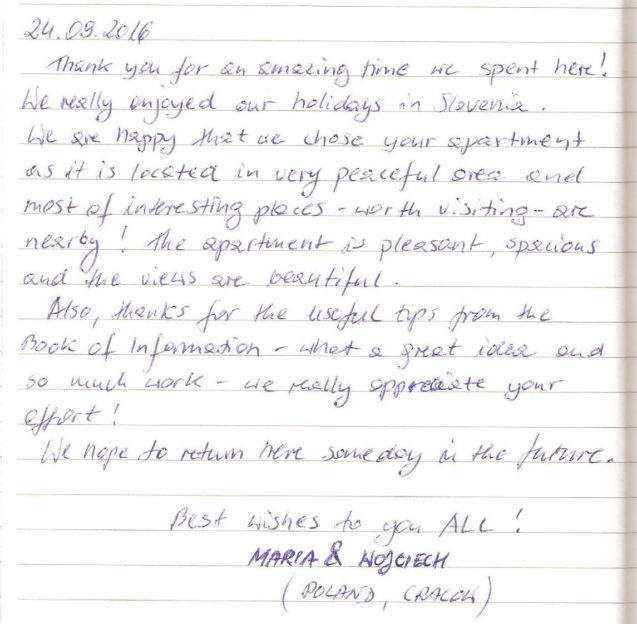 24.09.2016
Thank you for an amazing time we spent here!
We really enjoyed our holidays in Slovenia.
We are happy that we chose your apartment
as it is located in very peaceful area and
most of interesting places - worth visiting - are
nearby! The apartment is pleasant, spacious
and the views are beautiful.
Also, thanks for the useful tips from the
Book of Information - what a great idea and
so much work - we really appreciate your
effort!
We hope to return here someday in the future.
Best wishes to you ALL!
MARIA & WOJCIECH
(POLAND, CRACOW)